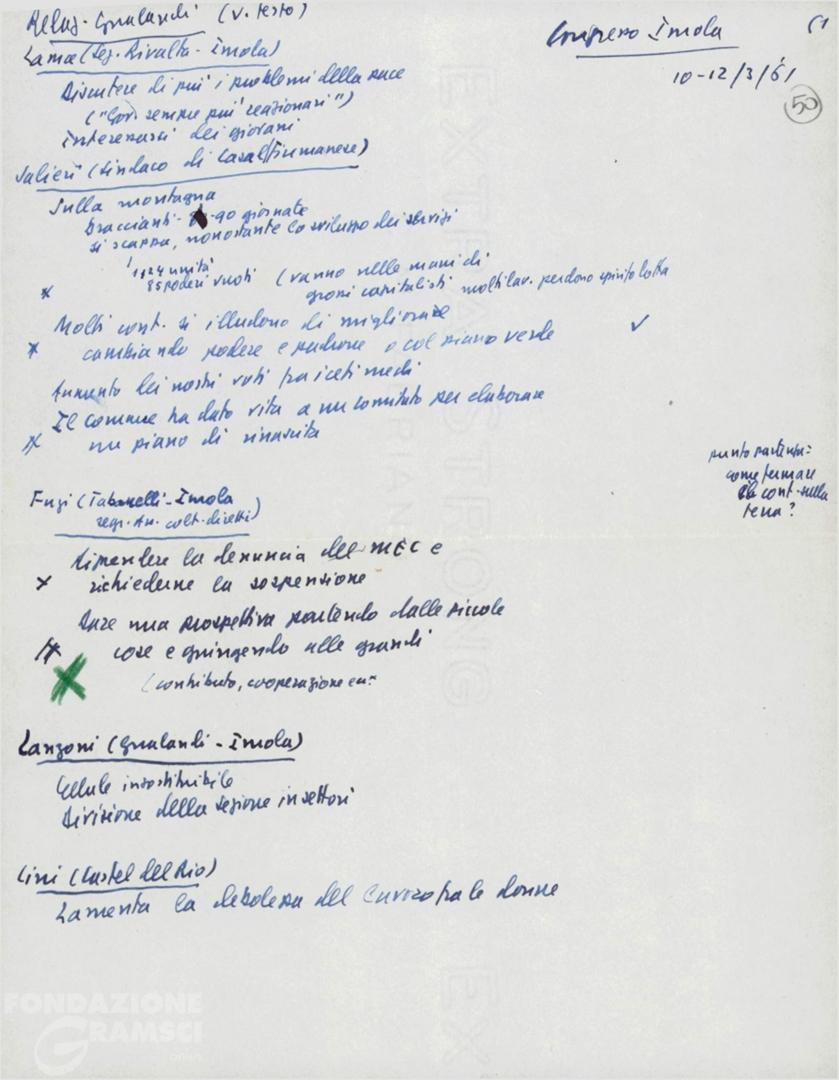 Relaz. Gualandi (v. testo)
Congresso Imola
10-12/3/61
50
Lama (Sez. Rivalta - Imola)
Discutere di più i problemi della pace
("Gov. sempre più reazionari")
interessarsi dei giovani
Salieri (Sindaco di Casalfiumanese)
Sulla montagna
braccianti - 90 giornate
si scappa, nonostante lo sviluppo dei servizi
1124 unità
85 poderi vuoti (vanno nelle mani di
grossi capitalisti molti lav. perdono spirito lotta
Molti cont. si illudono di migliorare
cambiando podere e padrone o col piano verde
Aumento dei nostri voti fra i ceti medi
Il comune ha dato vita a un comitato per elaborare
un piano di rinascita
punto partenza:
come fermare
i cont. sulla
terra?
Fuzi (Tabanelli - Imola
segr. An. colt. diretti)
Riprendere la denuncia del MEC e
richiederne la sospensione
Dare una prospettiva partendo dalle piccole
cose e giungendo alle grandi
(contributo, cooperazione ecc.
Lanzoni (Gualandi - Imola)
Cellule insostituibile
Divisione della sezione in settori
Cini (Castel del Rio)
Lamenta la debolezza del lavoro fra le donne
EXTRA STRONG
FONDAZIONE
GRAMSCI